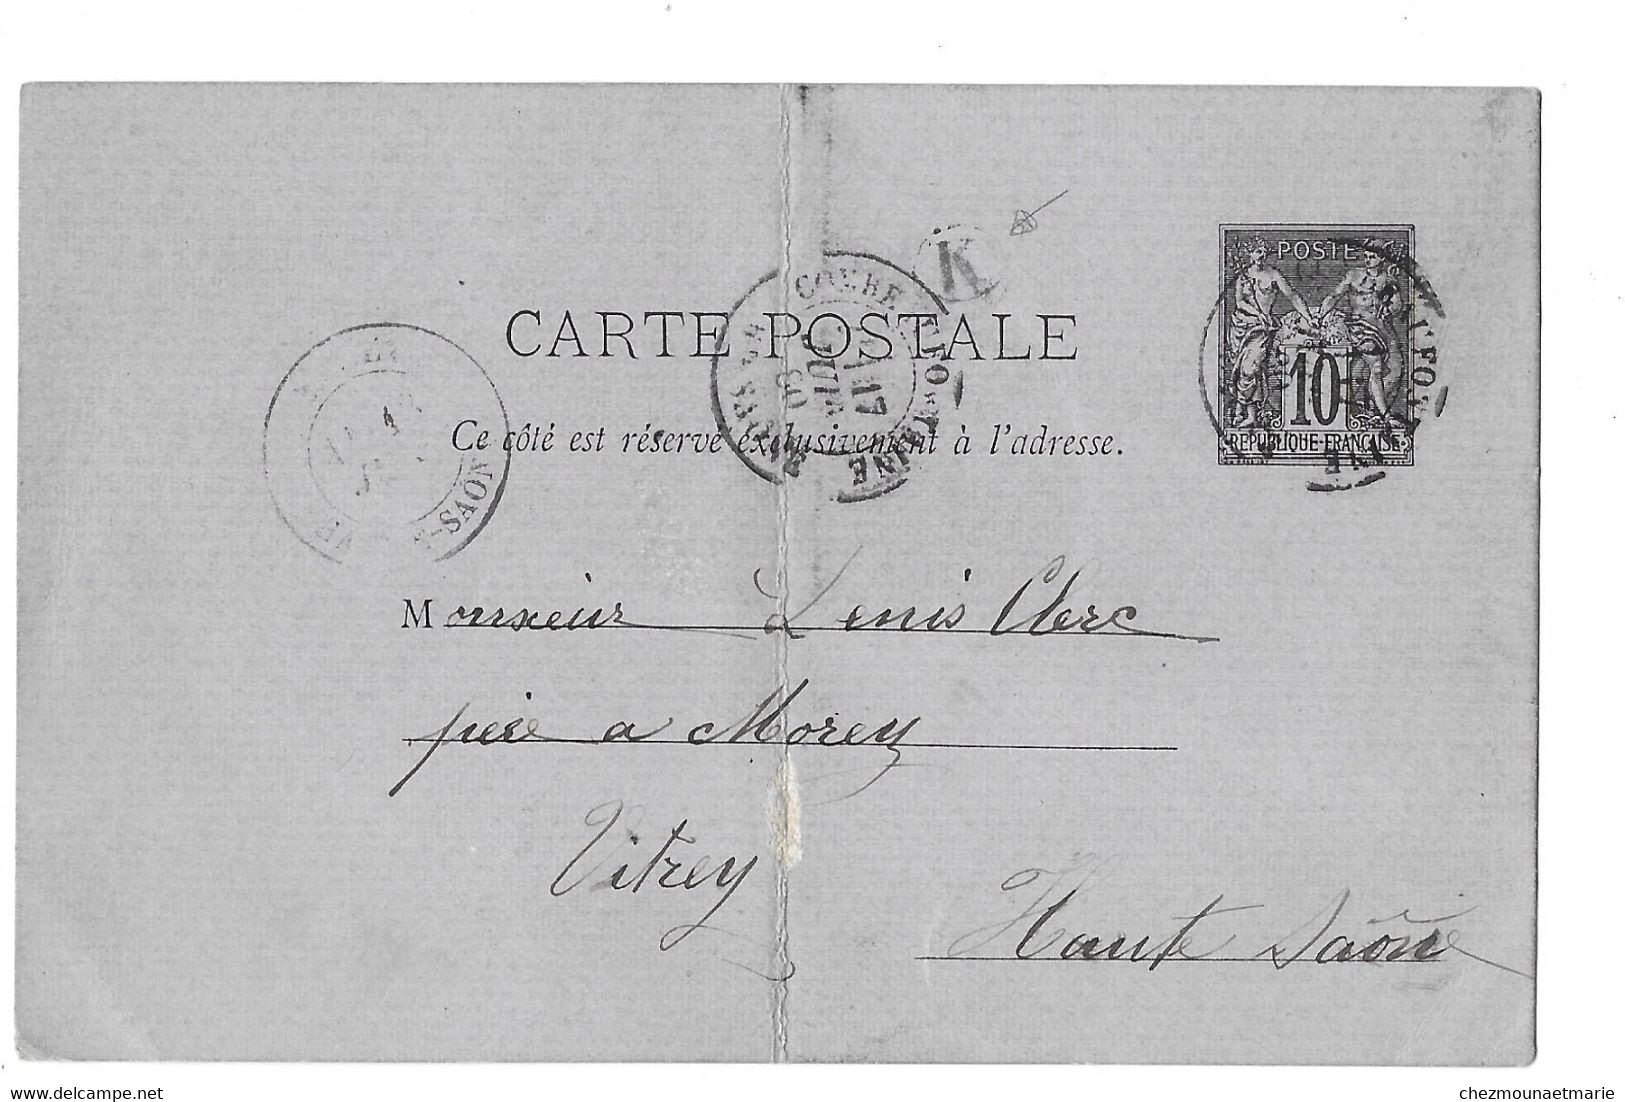 K
POSTE
10
REPUBLIQUE FRANÇAISE
CARTE POSTALE
Ce côté est réservé exclusivement à l'adresse.
Monsieur Denis Clerc
père a Morey
Vitrey
Haute Saône
chezmounaetmarie